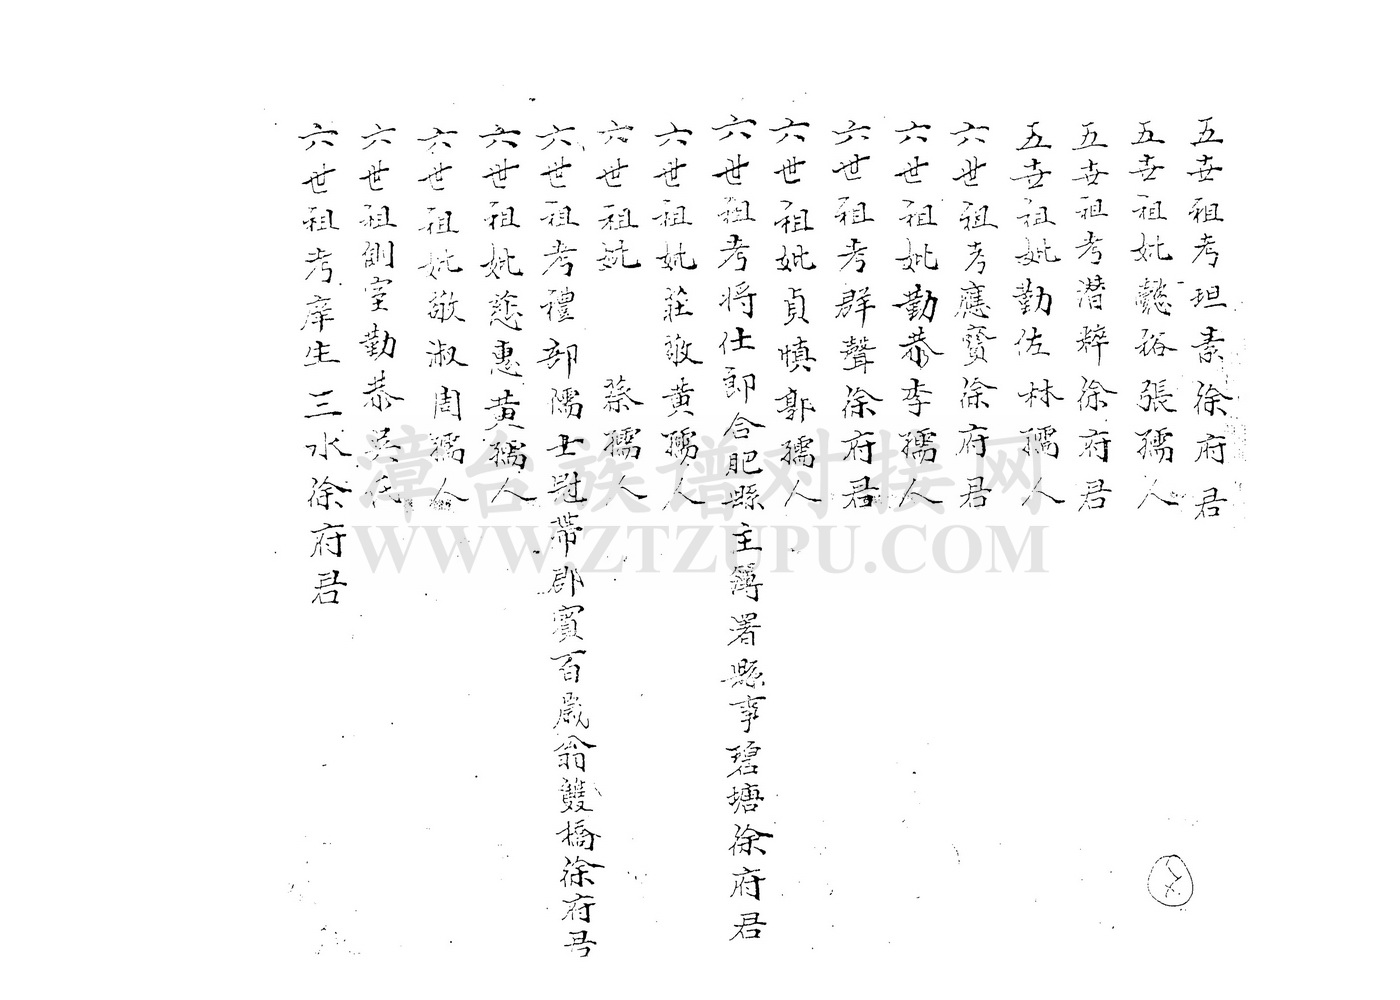 五世祖考坦素徐府君
五世祖妣懿裕張孺人
五世祖考潛粹徐府君
五世祖妣勤佐林孺人
六世祖考應賓徐府君
六世祖妣勤恭李孺人
六世祖考群聲徐府君
六世祖妣貞慎郭孺人
六世祖考将仕郎合肥縣主簿署縣事碧塘徐府君
六世祖妣莊敬黄孺人
六世祖妣 蔡孺人
六世祖考禮部儒士冠帶郡賓百歲翁雙橋徐府君
六世祖妣慈惠黄孺人
六世祖妣敬淑周孺人
六世祖側室勤恭吳氏
六世祖考庠生三水徐府君
漳台族谱对接网
WWW.ZTZUPU.COM